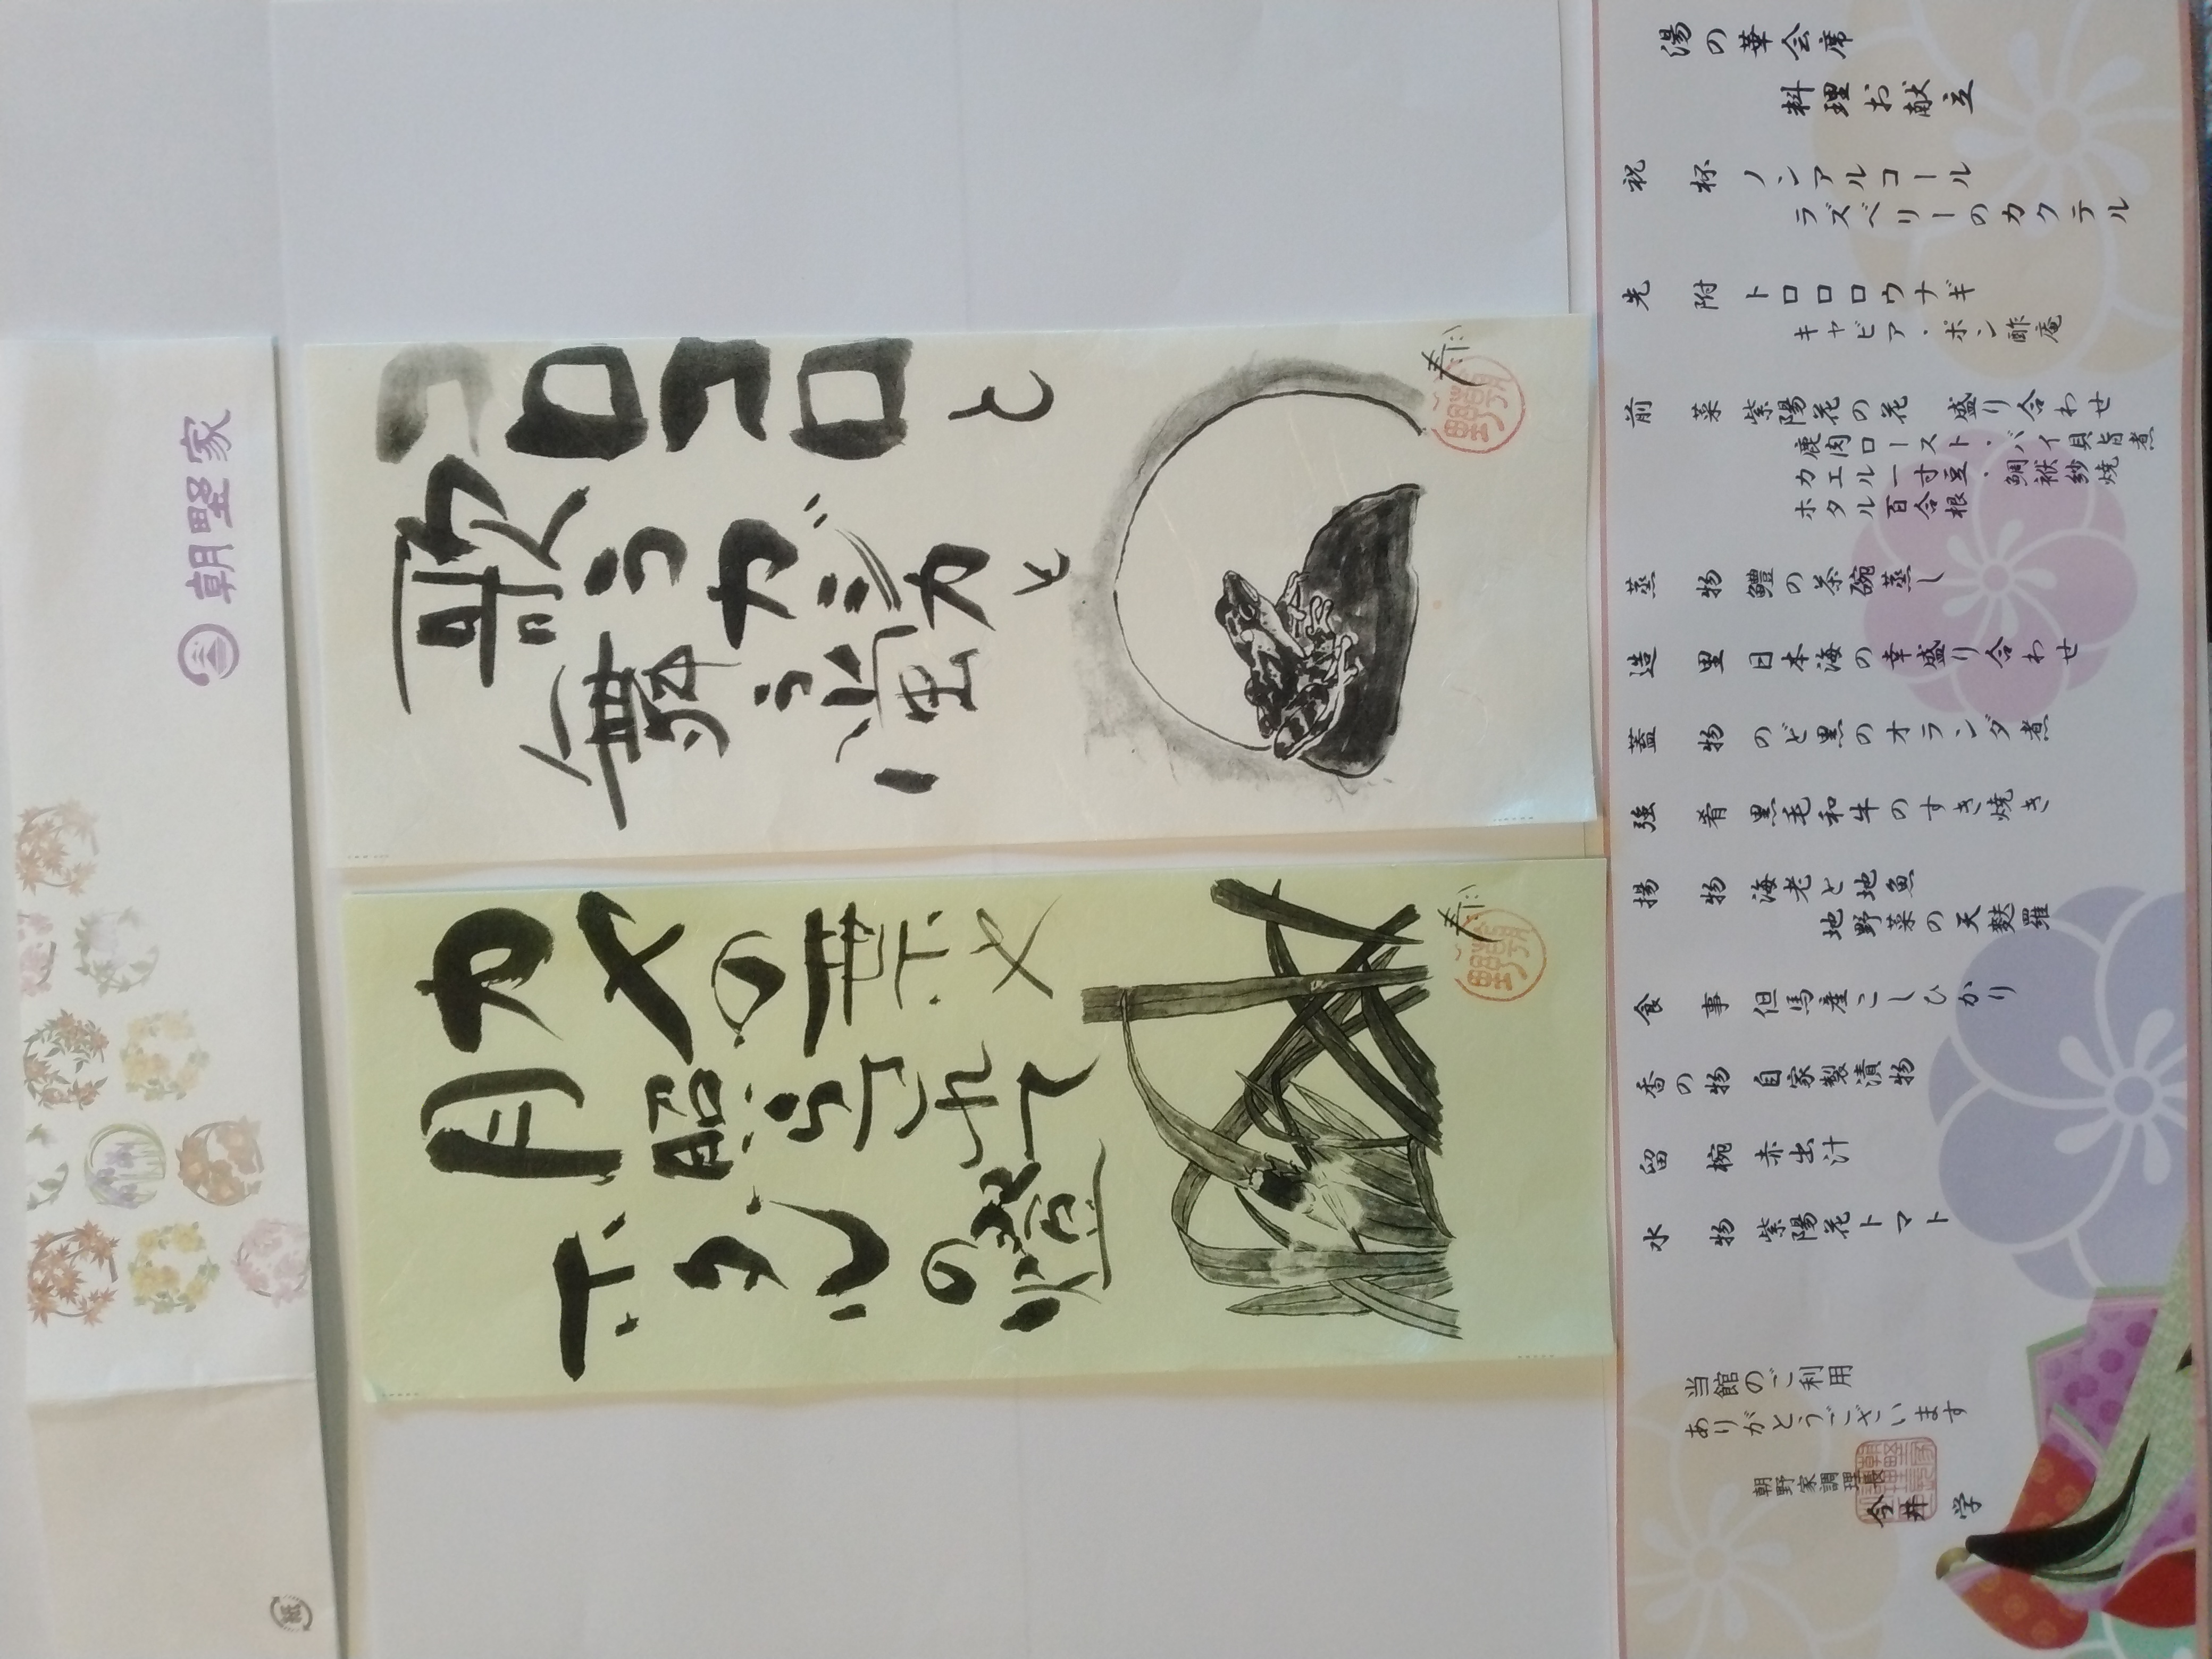 湯の華会席
料理お献立
祝杯 ノンアルコール
ラズベリーのカクテル
先附 トロロロウナギ
キャビア・ポン酢庵
前菜 紫陽花の花 盛り合わせ
鹿肉ロースト・バイ貝旨煮
カエル一寸豆・鯛袱紗焼
ホタル百合根
蒸物 鱧の茶碗蒸し
造里 日本海の幸盛り合わせ
蓋物 のど黒のオランダ煮
強肴 黒毛和牛のすき焼き
揚物 海老と地魚
地野菜の天麩羅
食事 但馬産こしひかり
香の物 自家製漬物
留椀 赤出汁
水物 紫陽花トマト
当館のご利用
ありがとうございます
朝野家調理長
今井 学
コロコロと
歌うカジカと
舞う螢
カヤの葉
月照らされて
ホタルの燈
朝野家
紙